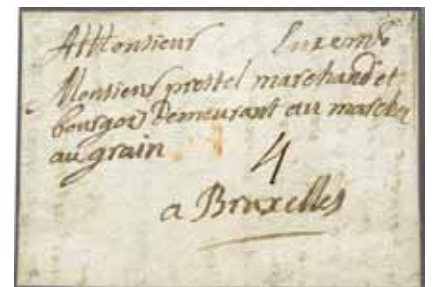 A Monsieur Luxemb
Monsieur prostel marchand et
bourgois demeurant au marche
au grain
4
a Bruxelles